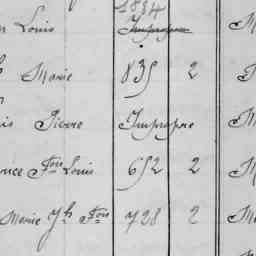 1894
Louis Impropre M
Marie 835 2
is Pierre Impropre M
rice Fois Louis 652 2 M
Marie Jh Fois 728 2 M